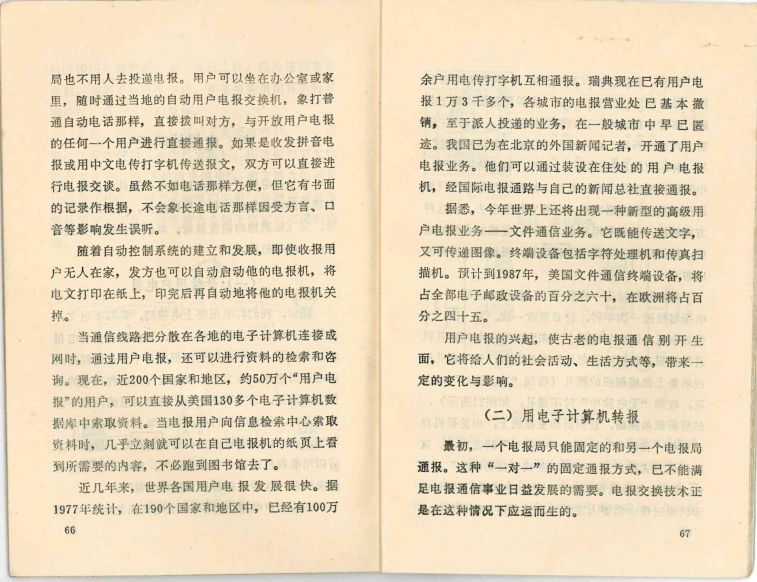 局也不用人去投递电报。用户可以坐在办公室或家
里，随时通过当地的自动用户电报交换机，象打普
通自动电话那样，直接拨叫对方，与开放用户电报
的任何一个用户进行直接通报。如果是收发拼音电
报或用中文电传打字机传送报文，双方可以直接进
行电报交谈。虽然不如电话那样方便，但它有书面
的记录作根据，不会象长途电话那样因受方言、口
音等影响发生误听。
随着自动控制系统的建立和发展，即使收报用
户无人在家，发方也可以自动启动他的电报机，将
电文打印在纸上，印完后再自动地将他的电报机关
掉。
当通信线路把分散在各地的电子计算机连接成
网时，通过用户电报，还可以进行资料的检索和咨
询。现在，近200个国家和地区，约50万个“用户电
报”的用户，可以直接从美国130多个电子计算机数
据库中索取资料。当电报用户向信息检索中心索取
资料时，几乎立刻就可以在自己电报机的纸页上看
到所需要的内容，不必跑到图书馆去了。
近几年来，世界各国用户电报发展很快。据
1977年统计，在190个国家和地区中，已经有100万
66
余户用电传打字机互相通报。瑞典现在已有用户电
报1万3千多个，各城市的电报营业处已基本撤
销，至于派人投递的业务，在一般城市中早已匿
迹。我国已为在北京的外国新闻记者，开通了用户
电报业务。他们可以通过装设在住处的用户电报
机，经国际电报通路与自己的新闻总社直接通报。
据悉，今年世界上还将出现一种新型的高级用
户电报业务——文件通信业务。它既能传送文字，
又可传递图像。终端设备包括字符处理机和传真扫
描机。预计到1987年，美国文件通信终端设备，将
占全部电子邮政设备的百分之六十，在欧洲将占百
分之四十五。
用户电报的兴起，使古老的电报通信别开生
面，它将给人们的社会活动、生活方式等，带来一
定的变化与影响。
（二）用电子计算机转报
最初，一个电报局只能固定的和另一个电报局
通报。这种“一对一”的固定通报方式，已不能满
足电报通信事业日益发展的需要。电报交换技术正
是在这种情况下应运而生的。
67